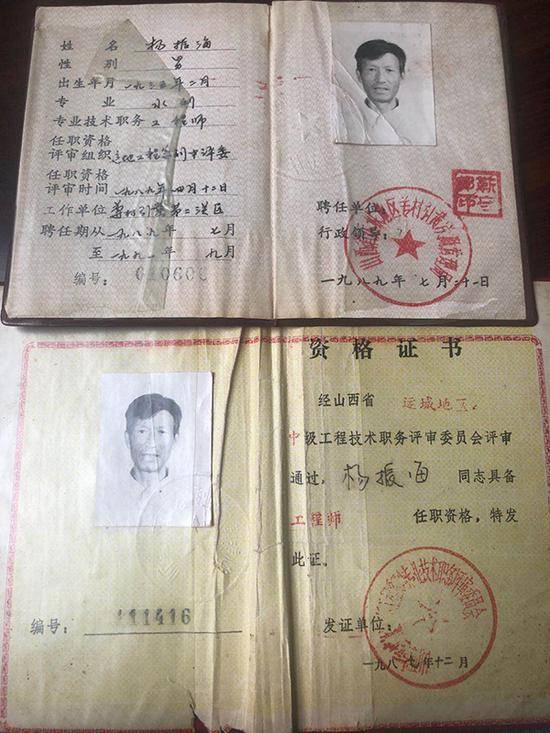 姓 名 杨振海
性 别 男
出生年月 一九三五年二月
专 业 水利
专业技术职务 工程师
任职资格
评审组织 运地工程系列中评委
任职资格
评审时间 一九八九年四月十二日
工作单位
聘任期从 一九八九年 七月
至 一九九一年 九月
编号: 010600
聘任单位
行政领导:
一九八九年 七月二十一日
资格证书
经山西省 运城地区
中级工程技术职务评审委员会评审
通过, 杨振海 同志具备
工程师 任职资格, 特发
此证。
编号: 111416
发证单位:
一九八七年十二月